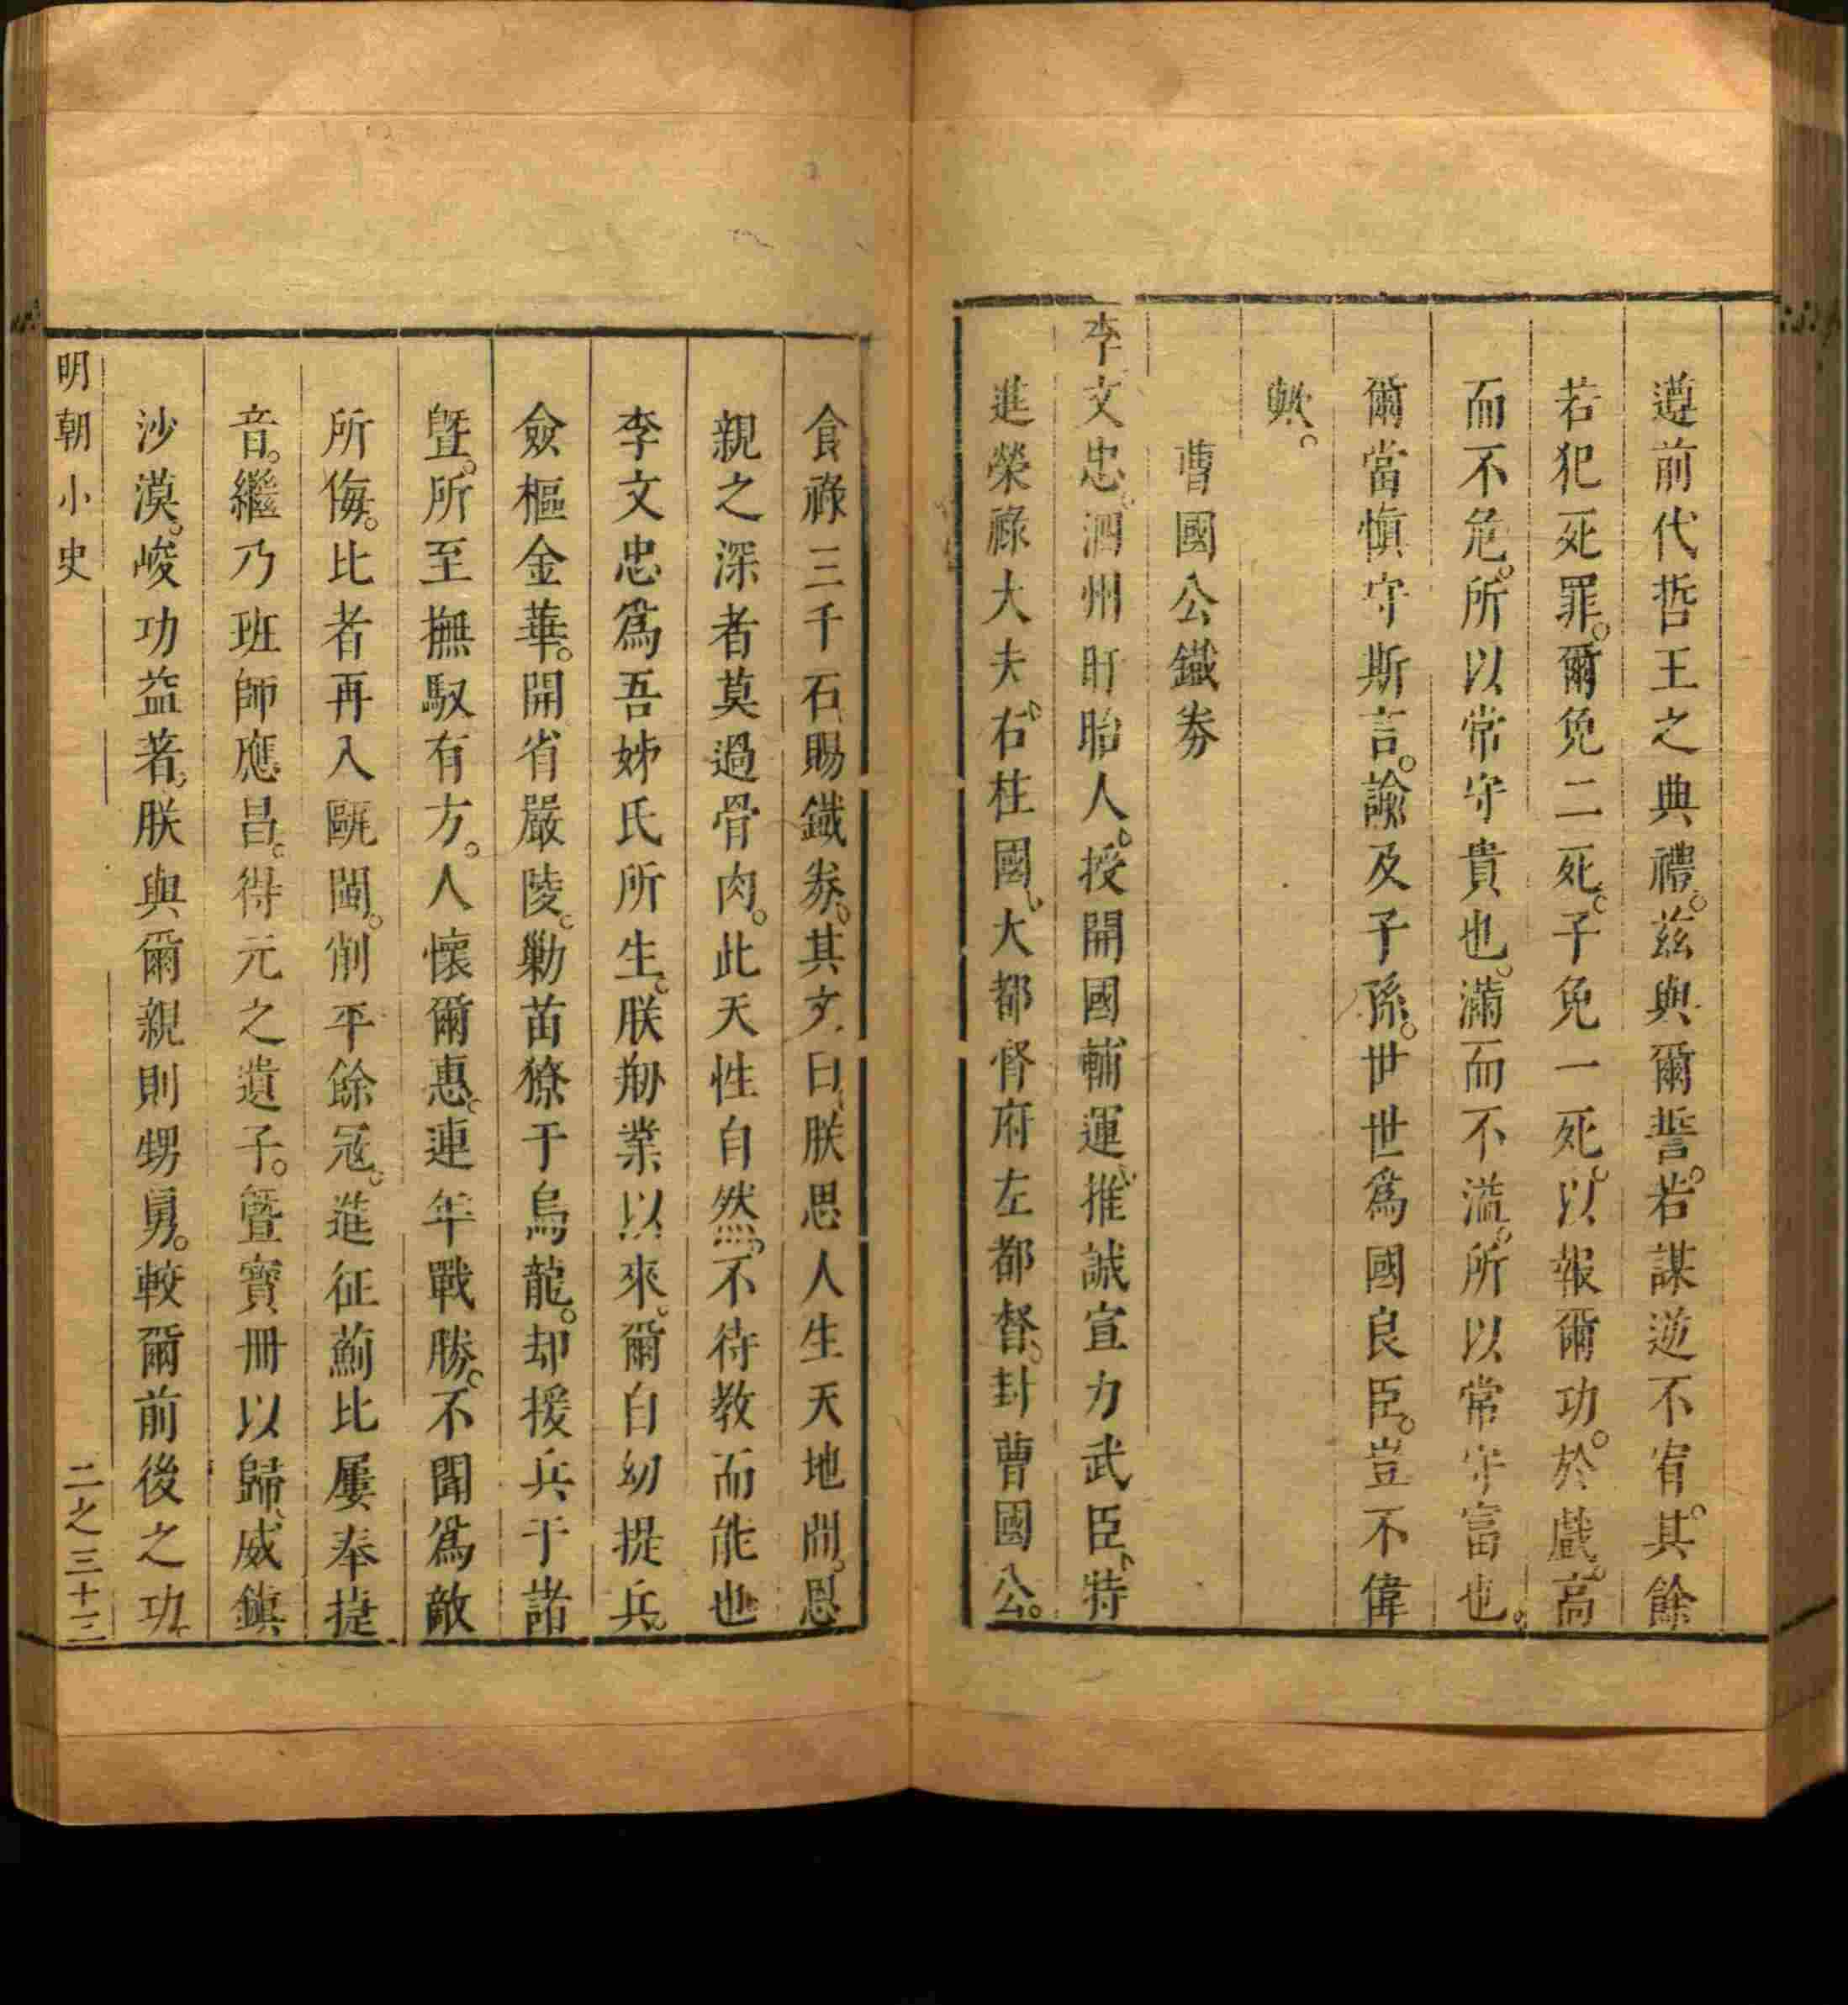 遵前代哲王之典禮。茲與爾誓。若謀逆不宥。其餘
若犯死罪。爾免二死。子免一死。以報爾功。於戲。高
而不危。所以常守貴也。滿而不溢。所以常守富也。
爾當慎守斯言。諭及子孫。世世爲國良臣。豈不偉
歟。
曹國公鐵券
李文忠。泗州盱眙人。授開國輔運、推誠宣力武臣、特
進榮祿大夫、右柱國、大都督府左都督。封曹國公。
食祿三千石賜鐵券。其文曰、朕思人生天地間。恩
親之深者莫過骨肉。此天性自然。不待教而能也
李文忠爲吾姊氏所生。朕剏業以來。爾自幼提兵。
僉樞金華。開省嚴陵。勦苗獠于烏龍。却援兵于諸
曁。所至撫馭有方。人懷爾惠。連年戰勝。不聞爲敵
所侮。比者再入甌閩。削平餘寇。進征薊北屢奉捷
音。繼乃班師應昌。得元之遺子。曁寶冊以歸、威鎭
沙漠。峻功益著。朕與爾親則甥舅。較爾前後之功、
明朝小史
二之三十三